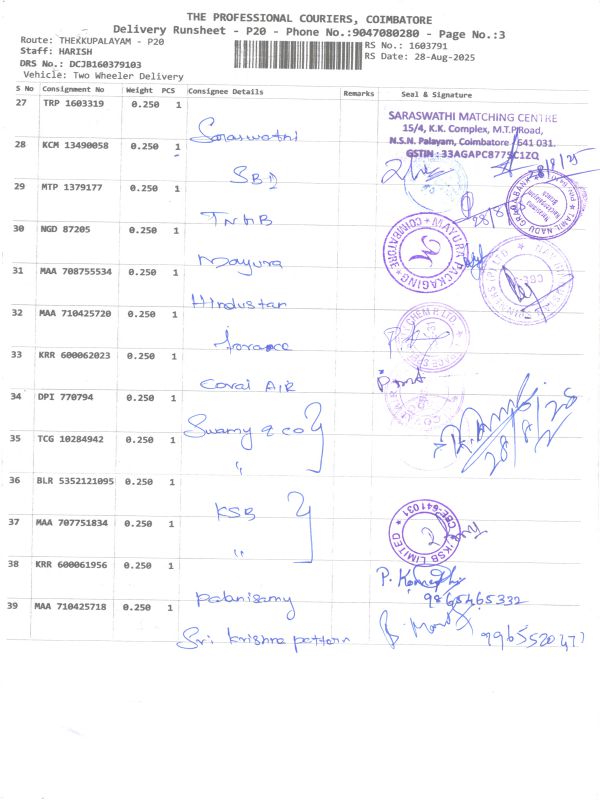 THE PROFESSIONAL COURIERS, COIMBATORE
Delivery Runsheet - P20 - Phone No.:9047080280 - Page No.:3
Route: THEKKUPALAYAM - P20
RS No.: 1603791
Staff: HARISH
RS Date: 28-Aug-2025
DRS No.: DCJB160379103
Vehicle: Two Wheeler Delivery
S No Consignment No Weight PCS Consignee Details Remarks Seal & Signature
27 TRP 1603319 0.250 1 Saraswathi
SARASWATHI MATCHING CENTRE
15/4, K.K. Complex, M.T.P.Road,
N.S.N. Palayam, Coimbatore 641 031.
GSTIN : 33AGAPC8775C1ZQ
28/8/25
28 KCM 13490058 0.250 1 SBI
29 MTP 1379177 0.250 1 TNHB
28/8
30 NGD 87205 0.250 1 Mayura
MAYURA PACKAGING
COIMBATORE
M
31 MAA 708755534 0.250 1 Hindustan
32 MAA 710425720 0.250 1 forance
33 KRR 600062023 0.250 1 Covai AIR
34 DPI 770794 0.250 1 Swamy & co
28/8/25
35 TCG 10284942 0.250 1 "
36 BLR 5352121095 0.250 1 KSB
KSB LIMITED
CBE-641031
37 MAA 707751834 0.250 1 "
38 KRR 600061956 0.250 1 palanisamy
9865465332
39 MAA 710425718 0.250 1 Sri krishna pattern